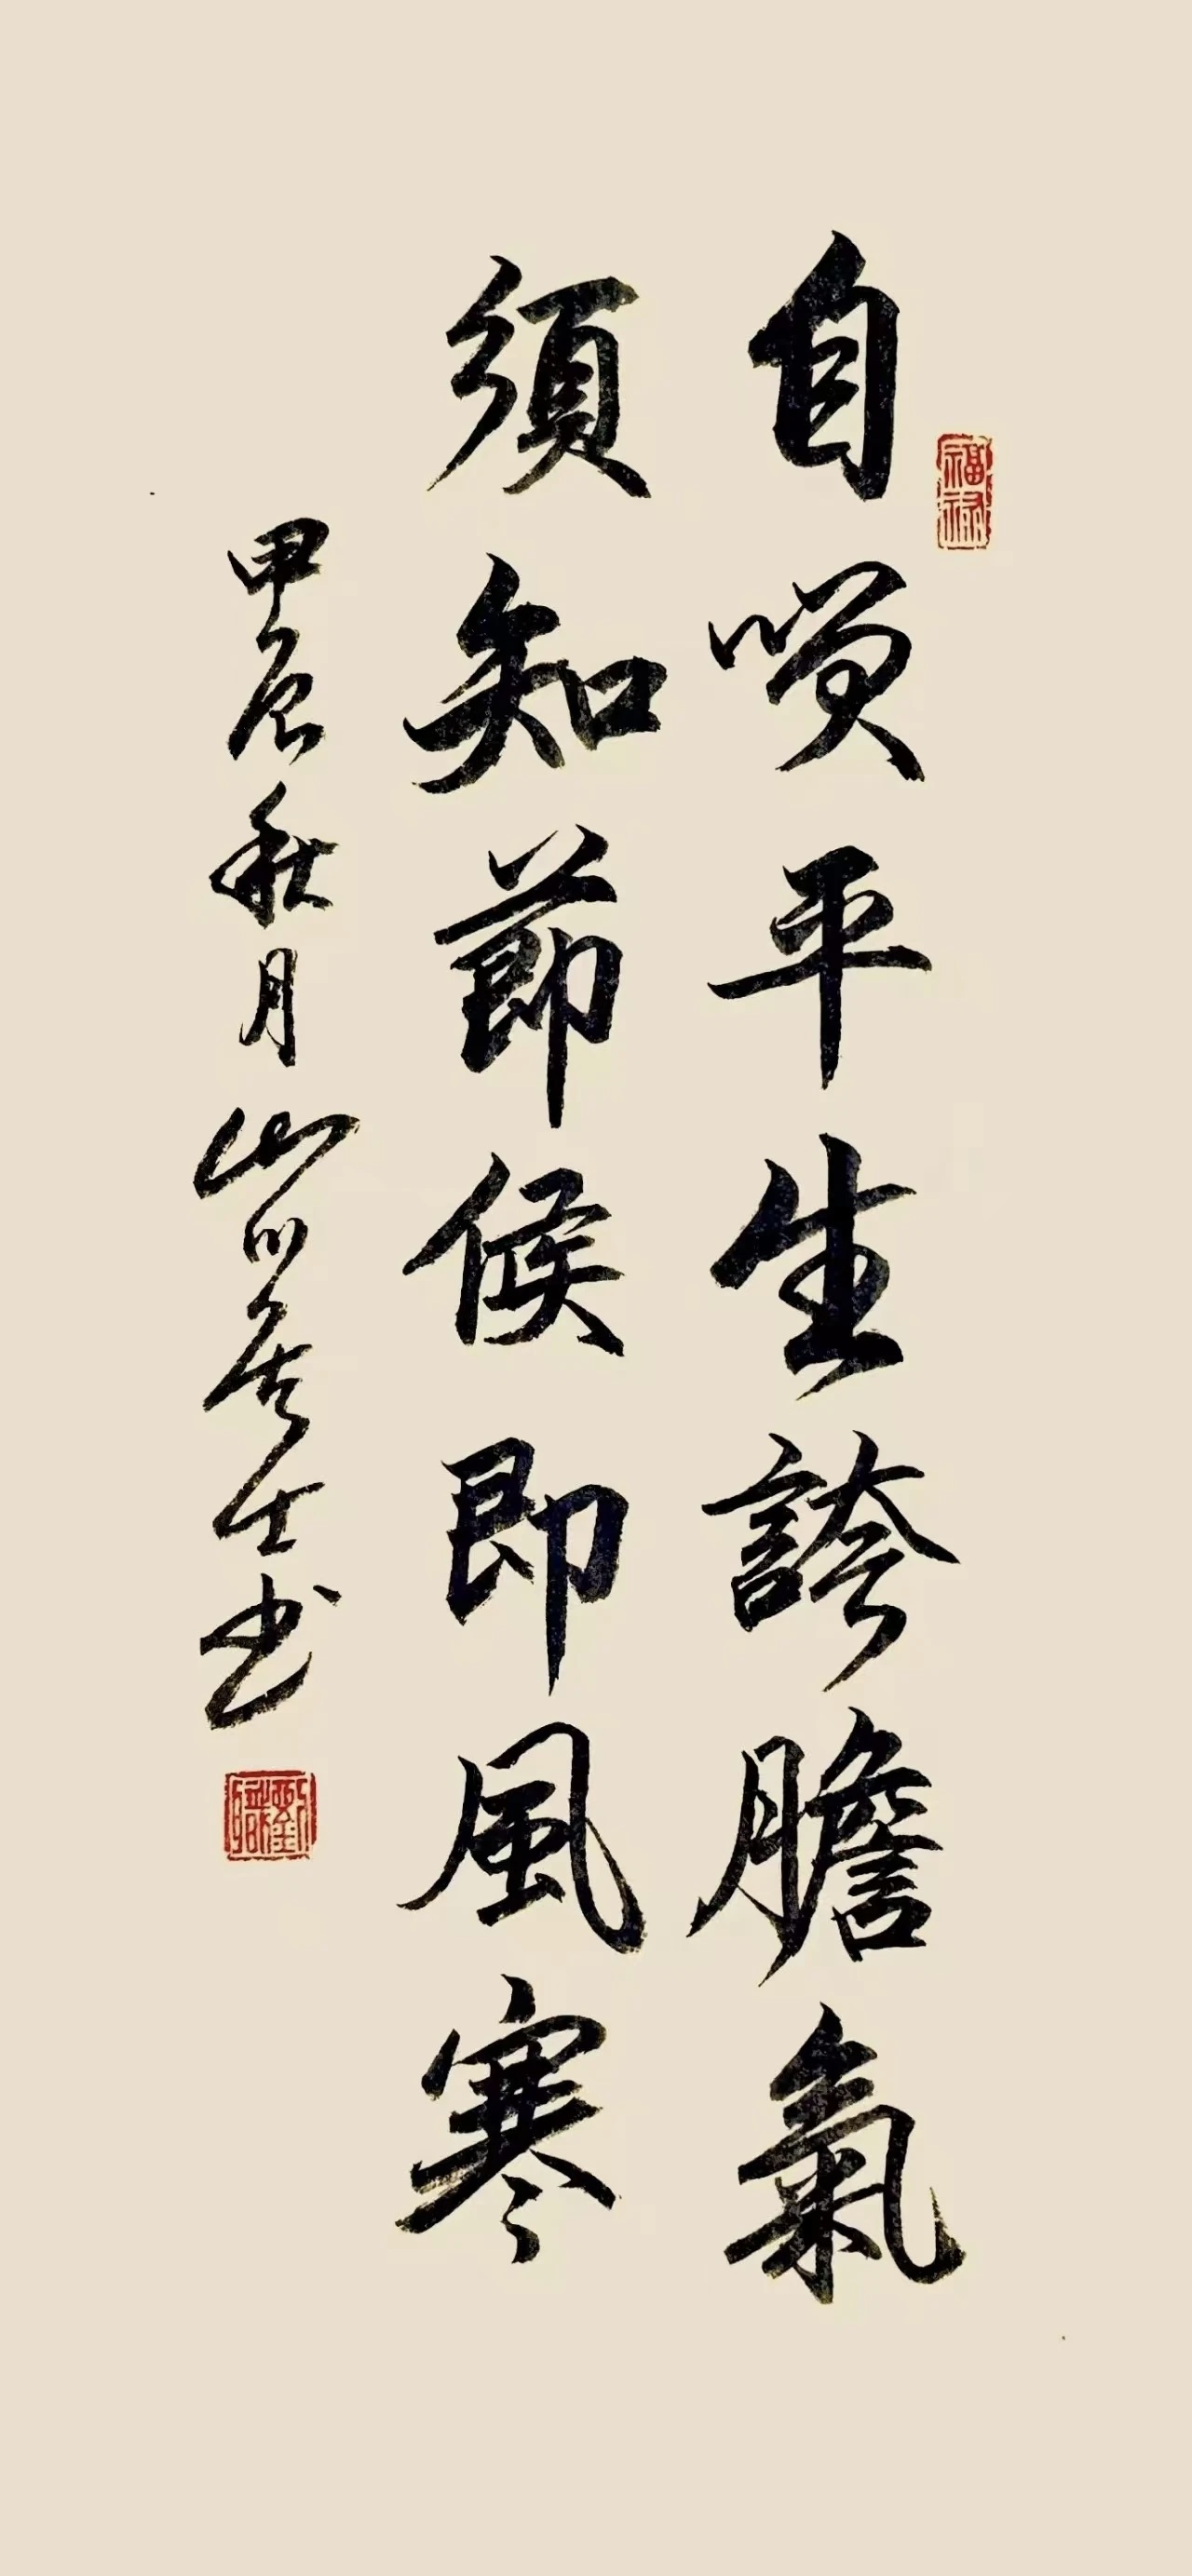 福禄
自嘆平生誇膽氣
須知節候即風寒
甲辰秋月山川居士书